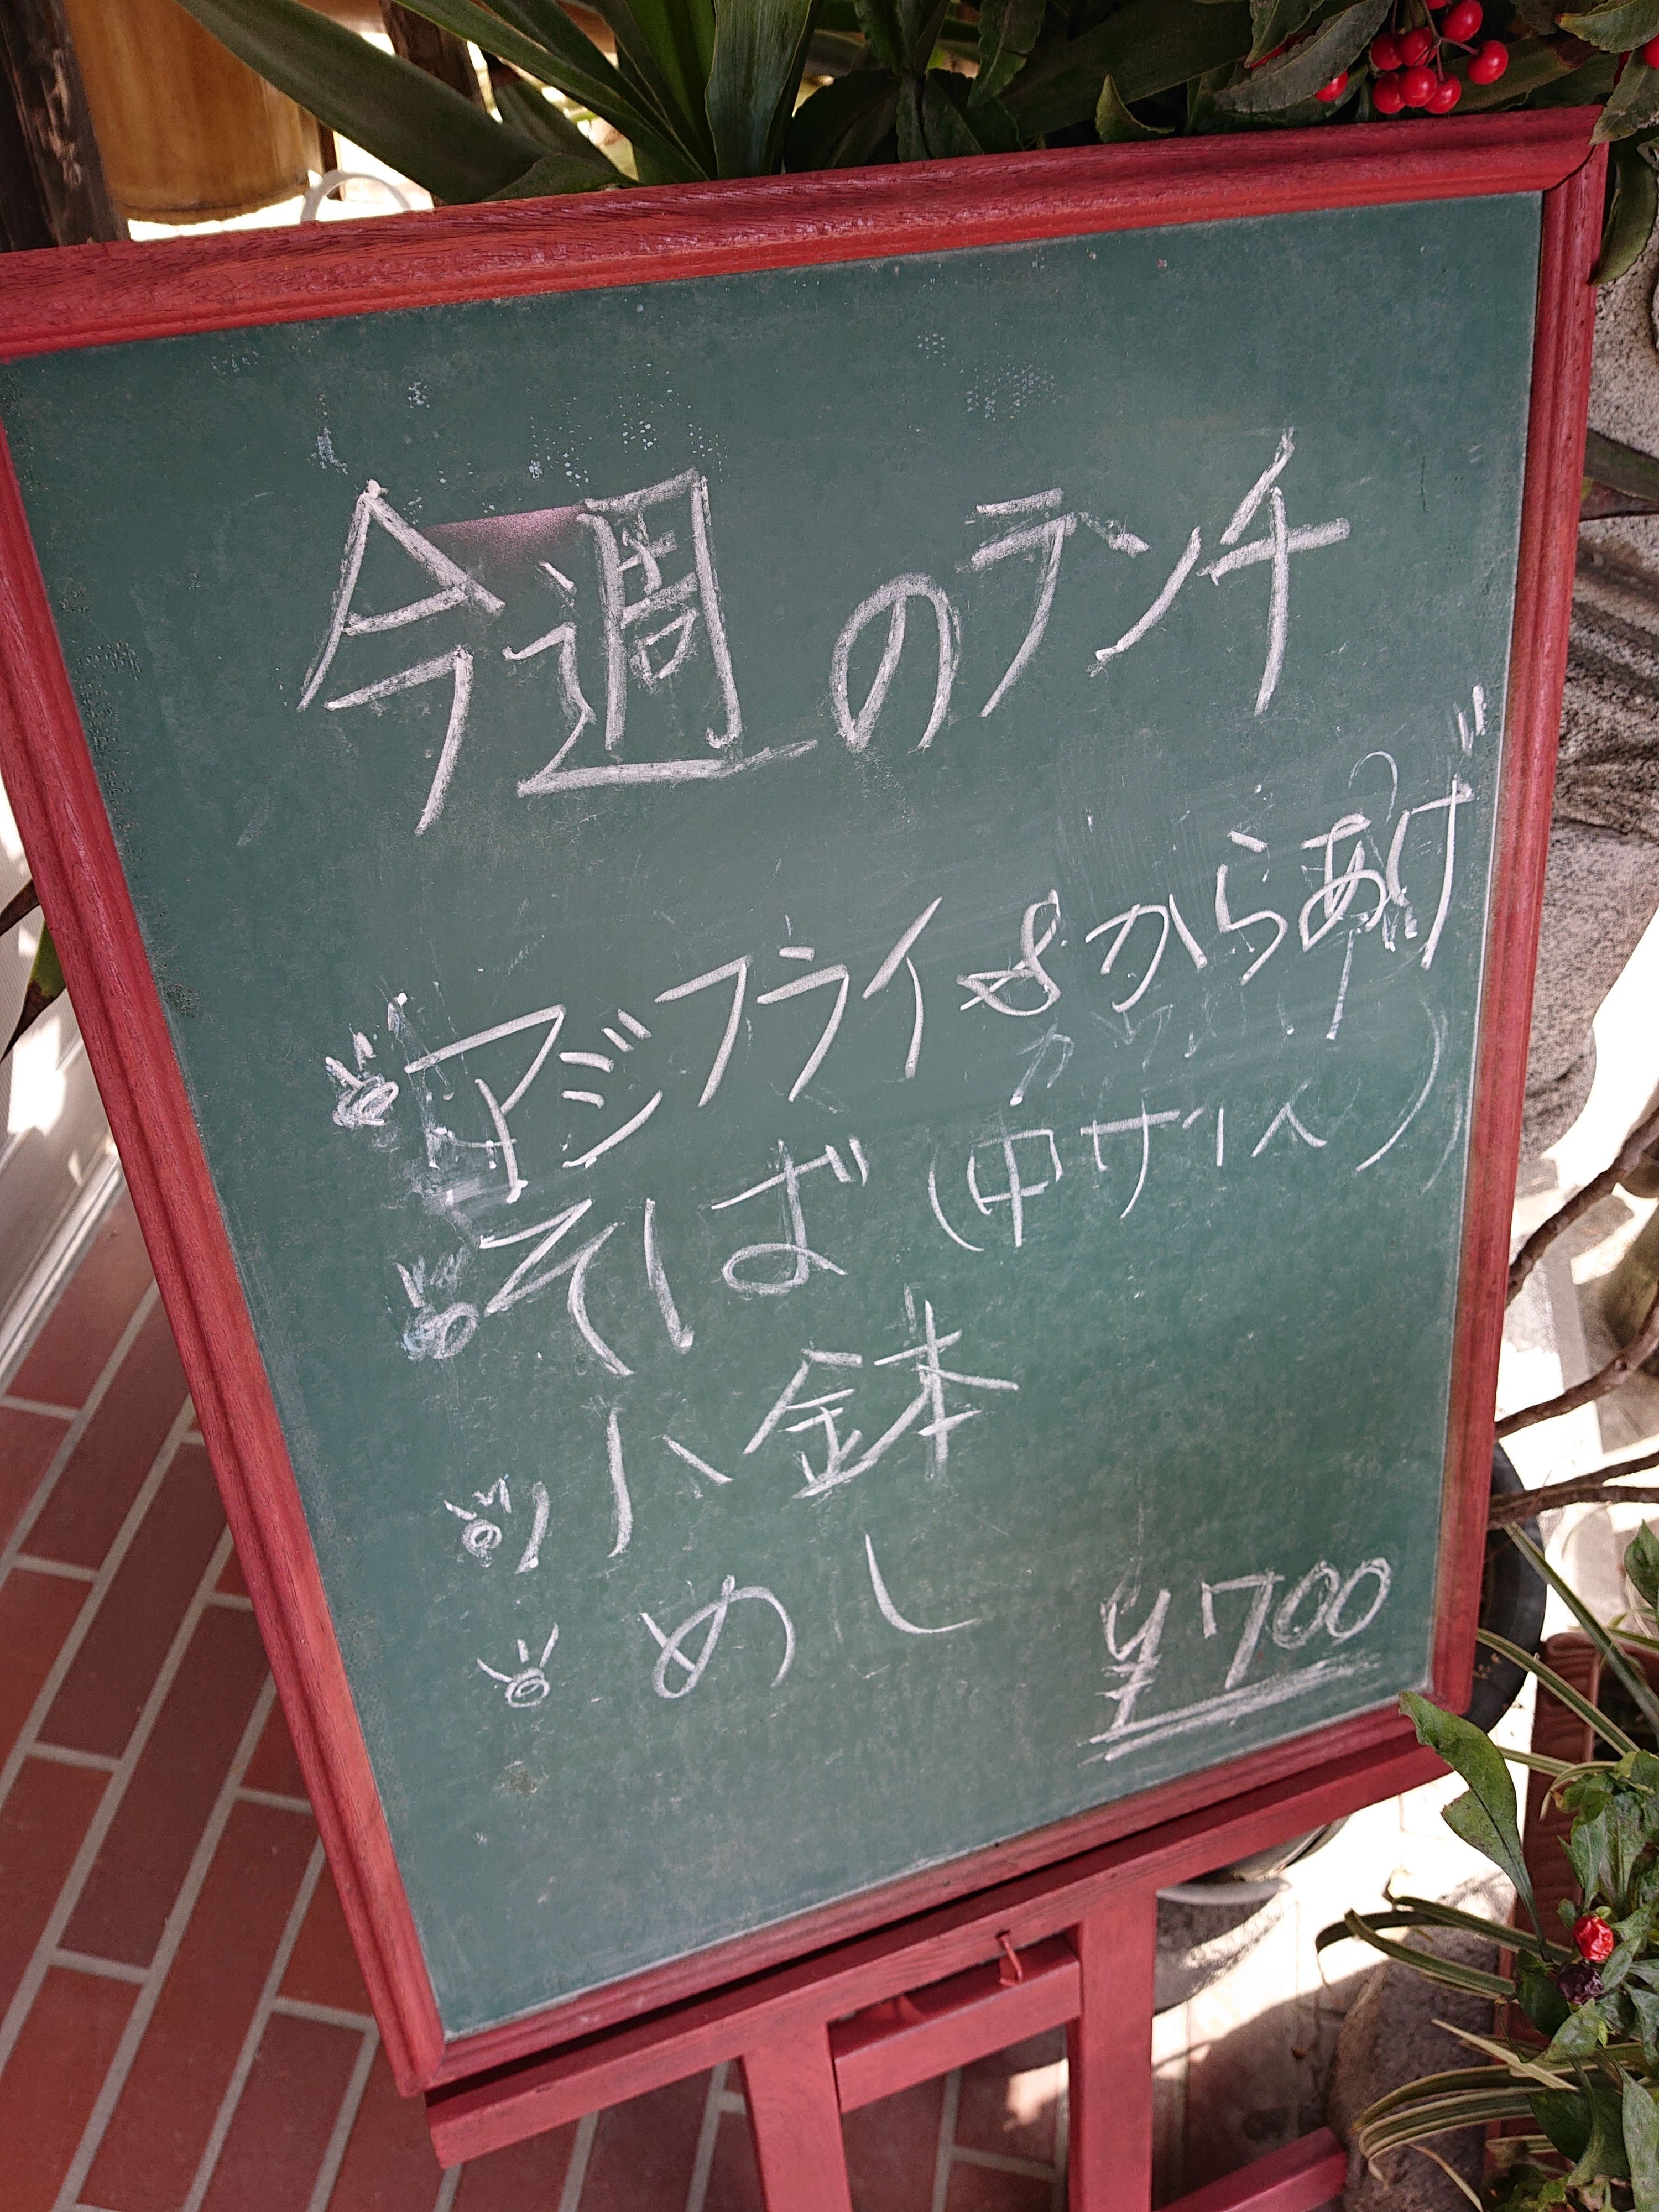 今週のランチ
アジフライ&からあげ
そば(中サイズ)
小鉢
めし
¥700